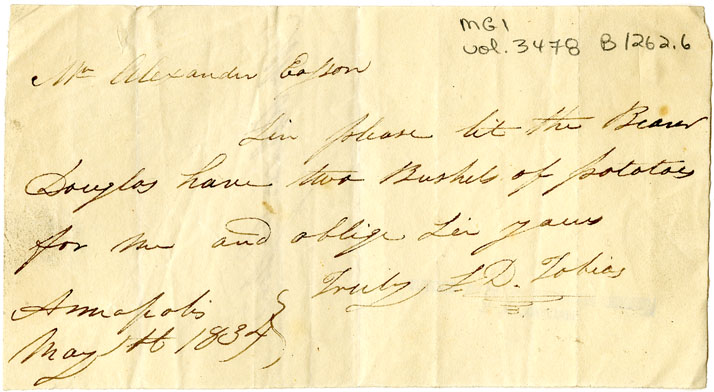 MG1
vol. 3478 B1262.6
Mr Alexander Easson
Sir please let the Bearer
Douglas have two Bushels of potatoes
for me and oblige Sir yours
Truly, S. D. Tobias
Annapolis
May 1st 1834